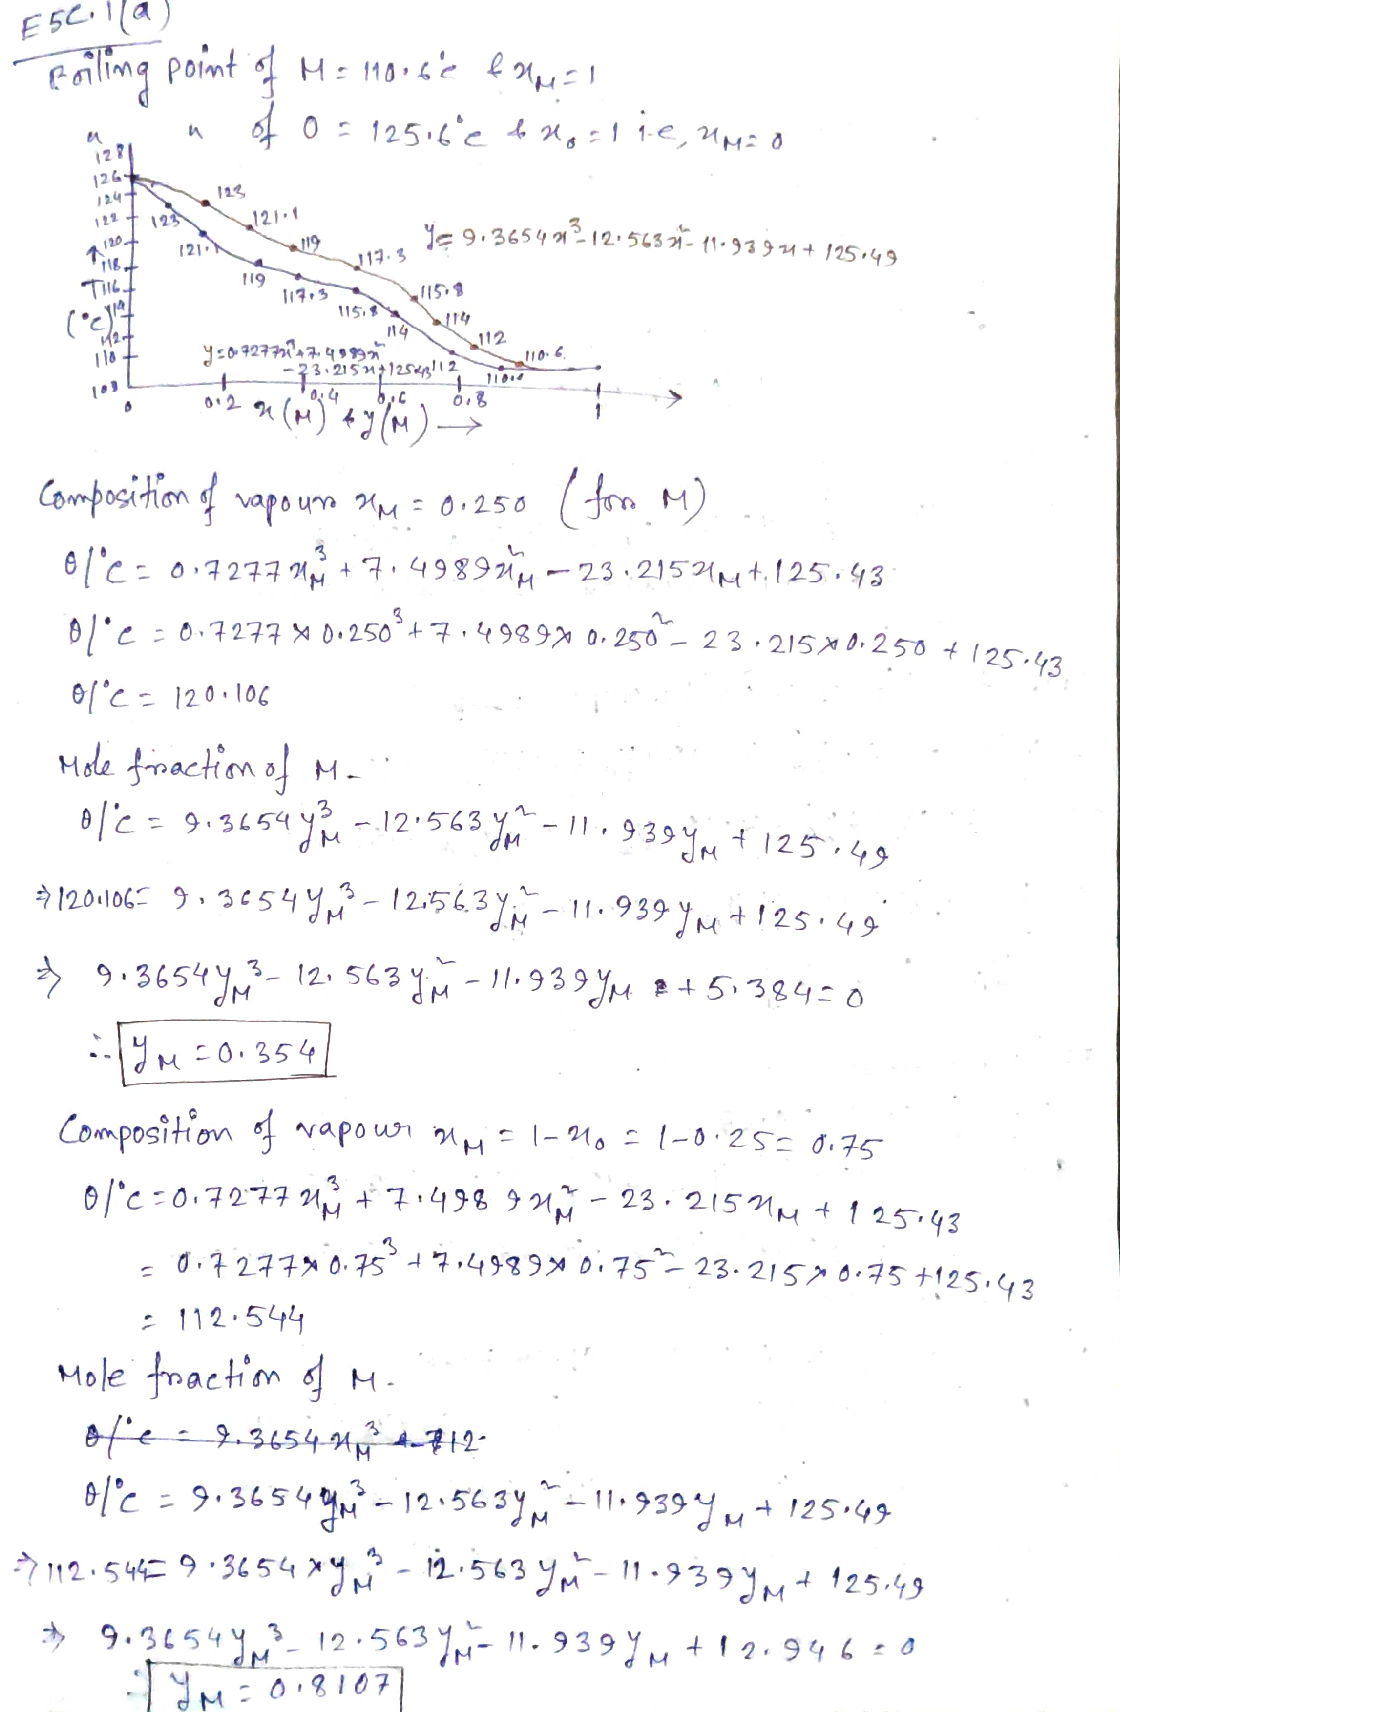 E5C.1(a)
Boiling point of M = 110.6°c & x_M = 1
" " of O = 125.6°c & x_o = 1 i.e, x_M = 0
128
126
124
122
120
118
116
114
112
110
108
T
(°c)
123
121.1
119
117.3
115.8
114
112
110.6
y = 9.3654x³ - 12.563x² - 11.939x + 125.49
123
121.1
119
117.3
115.8
114
112
110.6
y = 0.7277x³ + 7.4989x²
- 23.215x + 125.43
0 0.2 0.4 0.6 0.8 1
x(M) & y(M) →
Composition of vapour x_M = 0.250 (for M)
θ/°c = 0.7277 x_M³ + 7.4989 x_M² - 23.215 x_M + 125.43
θ/°c = 0.7277 × 0.250³ + 7.4989 × 0.250² - 23.215 × 0.250 + 125.43
θ/°c = 120.106
Mole fraction of M -
θ/°c = 9.3654 y_M³ - 12.563 y_M² - 11.939 y_M + 125.49
⇒ 120.106 = 9.3654 y_M³ - 12.563 y_M² - 11.939 y_M + 125.49
⇒ 9.3654 y_M³ - 12.563 y_M² - 11.939 y_M + 5.384 = 0
∴ y_M = 0.354
Composition of vapour x_M = 1 - x_o = 1 - 0.25 = 0.75
θ/°c = 0.7277 x_M³ + 7.4989 x_M² - 23.215 x_M + 125.43
= 0.7277 × 0.75³ + 7.4989 × 0.75² - 23.215 × 0.75 + 125.43
= 112.544
Mole fraction of M -
θ/°c = 9.3654 x_M³
θ/°c = 9.3654 y_M³ - 12.563 y_M² - 11.939 y_M + 125.49
⇒ 112.544 = 9.3654 × y_M³ - 12.563 y_M² - 11.939 y_M + 125.49
⇒ 9.3654 y_M³ - 12.563 y_M² - 11.939 y_M + 12.946 = 0
∴ y_M = 0.8107